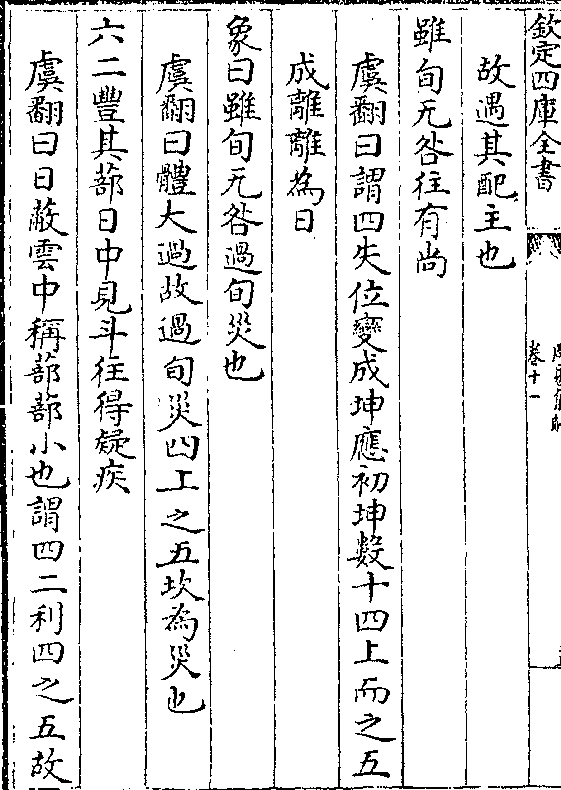 欽定四庫全書
卷十一
故遇其配主也
雖旬无咎往有尚
虞翻曰謂四失位變成坤應初坤數十四上而之五
成離離為日
象曰雖旬无咎過旬災也
虞翻曰體大過故過旬災四上之五坎為災也
六二豐其蔀日中見斗往得疑疾
虞翻曰日蔽雲中稱蔀蔀小也謂四二利四之五故